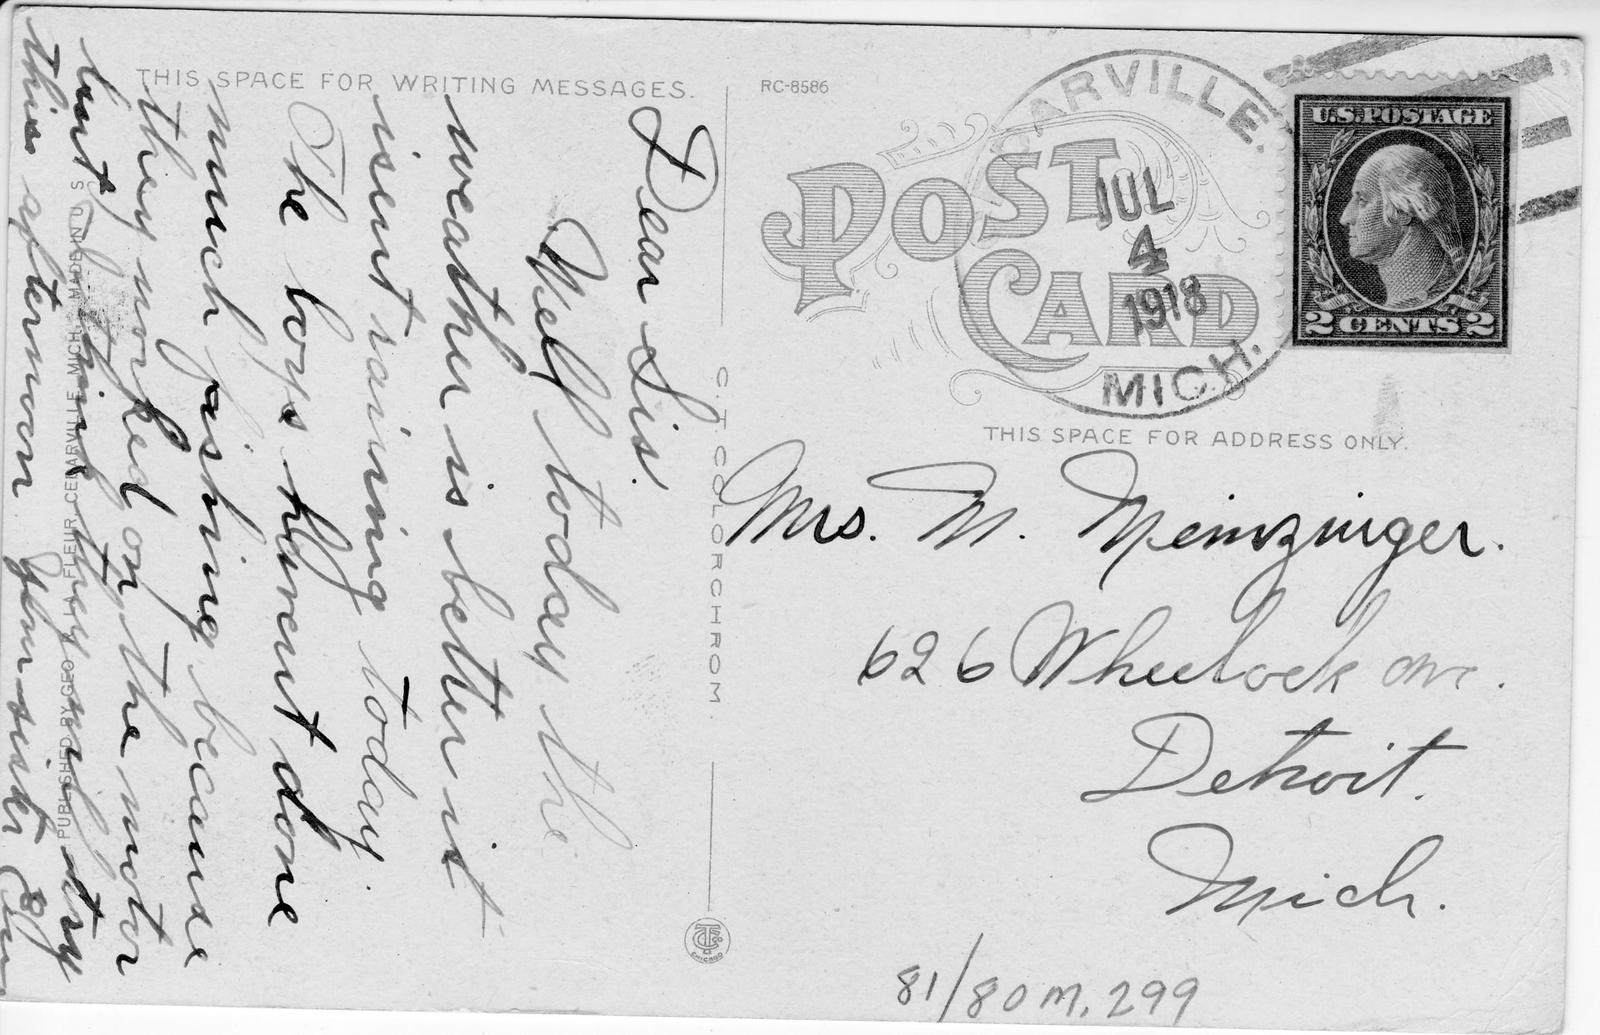 THIS SPACE FOR WRITING MESSAGES.
Dear Sis.
Well today the
weather is better it
isent raining today.
The boys havent done
much fishing because
they worked on the motor
but I think they will try
this afternoon your sister
PUBLISHED BY GEO. LA FLEUR, CEDARVILLE, MICH. MADE IN U S
C. T. COLORCHROM.
RC-8586
POST CARD
CEDARVILLE.
JUL
4
1918
MICH.
U.S. POSTAGE
2 CENTS 2
THIS SPACE FOR ADDRESS ONLY.
Mrs. N. Meinzinger.
626 Wheelock ave.
Detroit.
Mich.
CHICAGO
81/80 M. 299